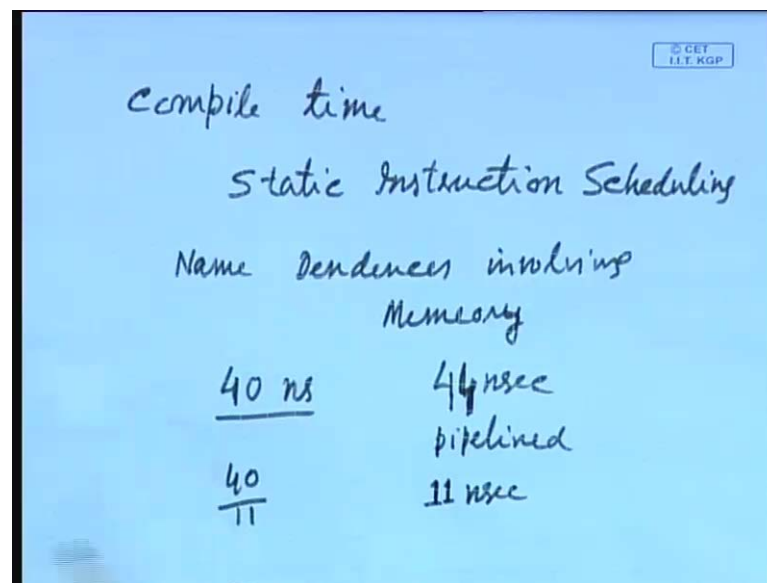 © CET
I.I.T. KGP
Compile time
Static Instruction Scheduling
Name Dendences involving
Memeory
40 ns 44 nsec
pipelined
40 11 nsec
11